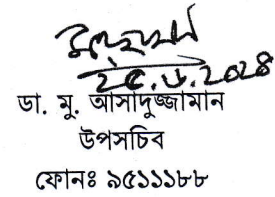 ২৫.৬.২০২৪
ডা. মু. আসাদুজ্জামান
উপসচিব
ফোনঃ ৯৫১১১৮৮